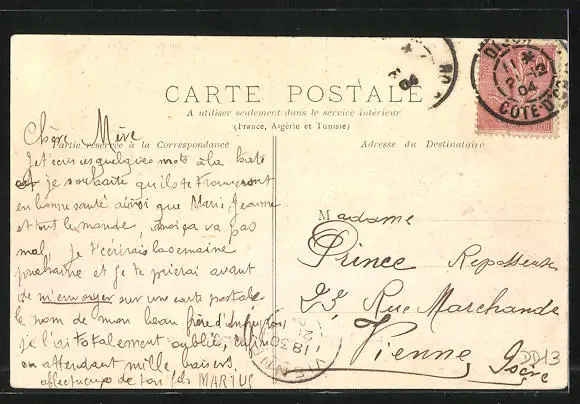 CARTE POSTALE
A utiliser seulement dans le service intérieur
(France, Algérie et Tunisie)
Partie réservée à la Correspondance
Adresse du Destinataire
Chère Mère
Je t'ecris quelques mots a la hate
et je souhaite qu'ils te trouveront
en bonne santé ainsi que Marie Jeanne
et tout le monde, moi ça va pas
mal. Je t'écrirais la semaine
prochaine et je te prierai avant
de m'envoyer sur une carte postale
le nom de mon beau frère
je l'ai totalement oublié, enfin
en attendant mille baisers
affectueux de ton fils MARIUS
Madame
Prince Repasseuse
23, Rue Marchande
Vienne
Isère
DD13
11 *
21 12
04
COTE D'OR
04
VIENNE
18 30